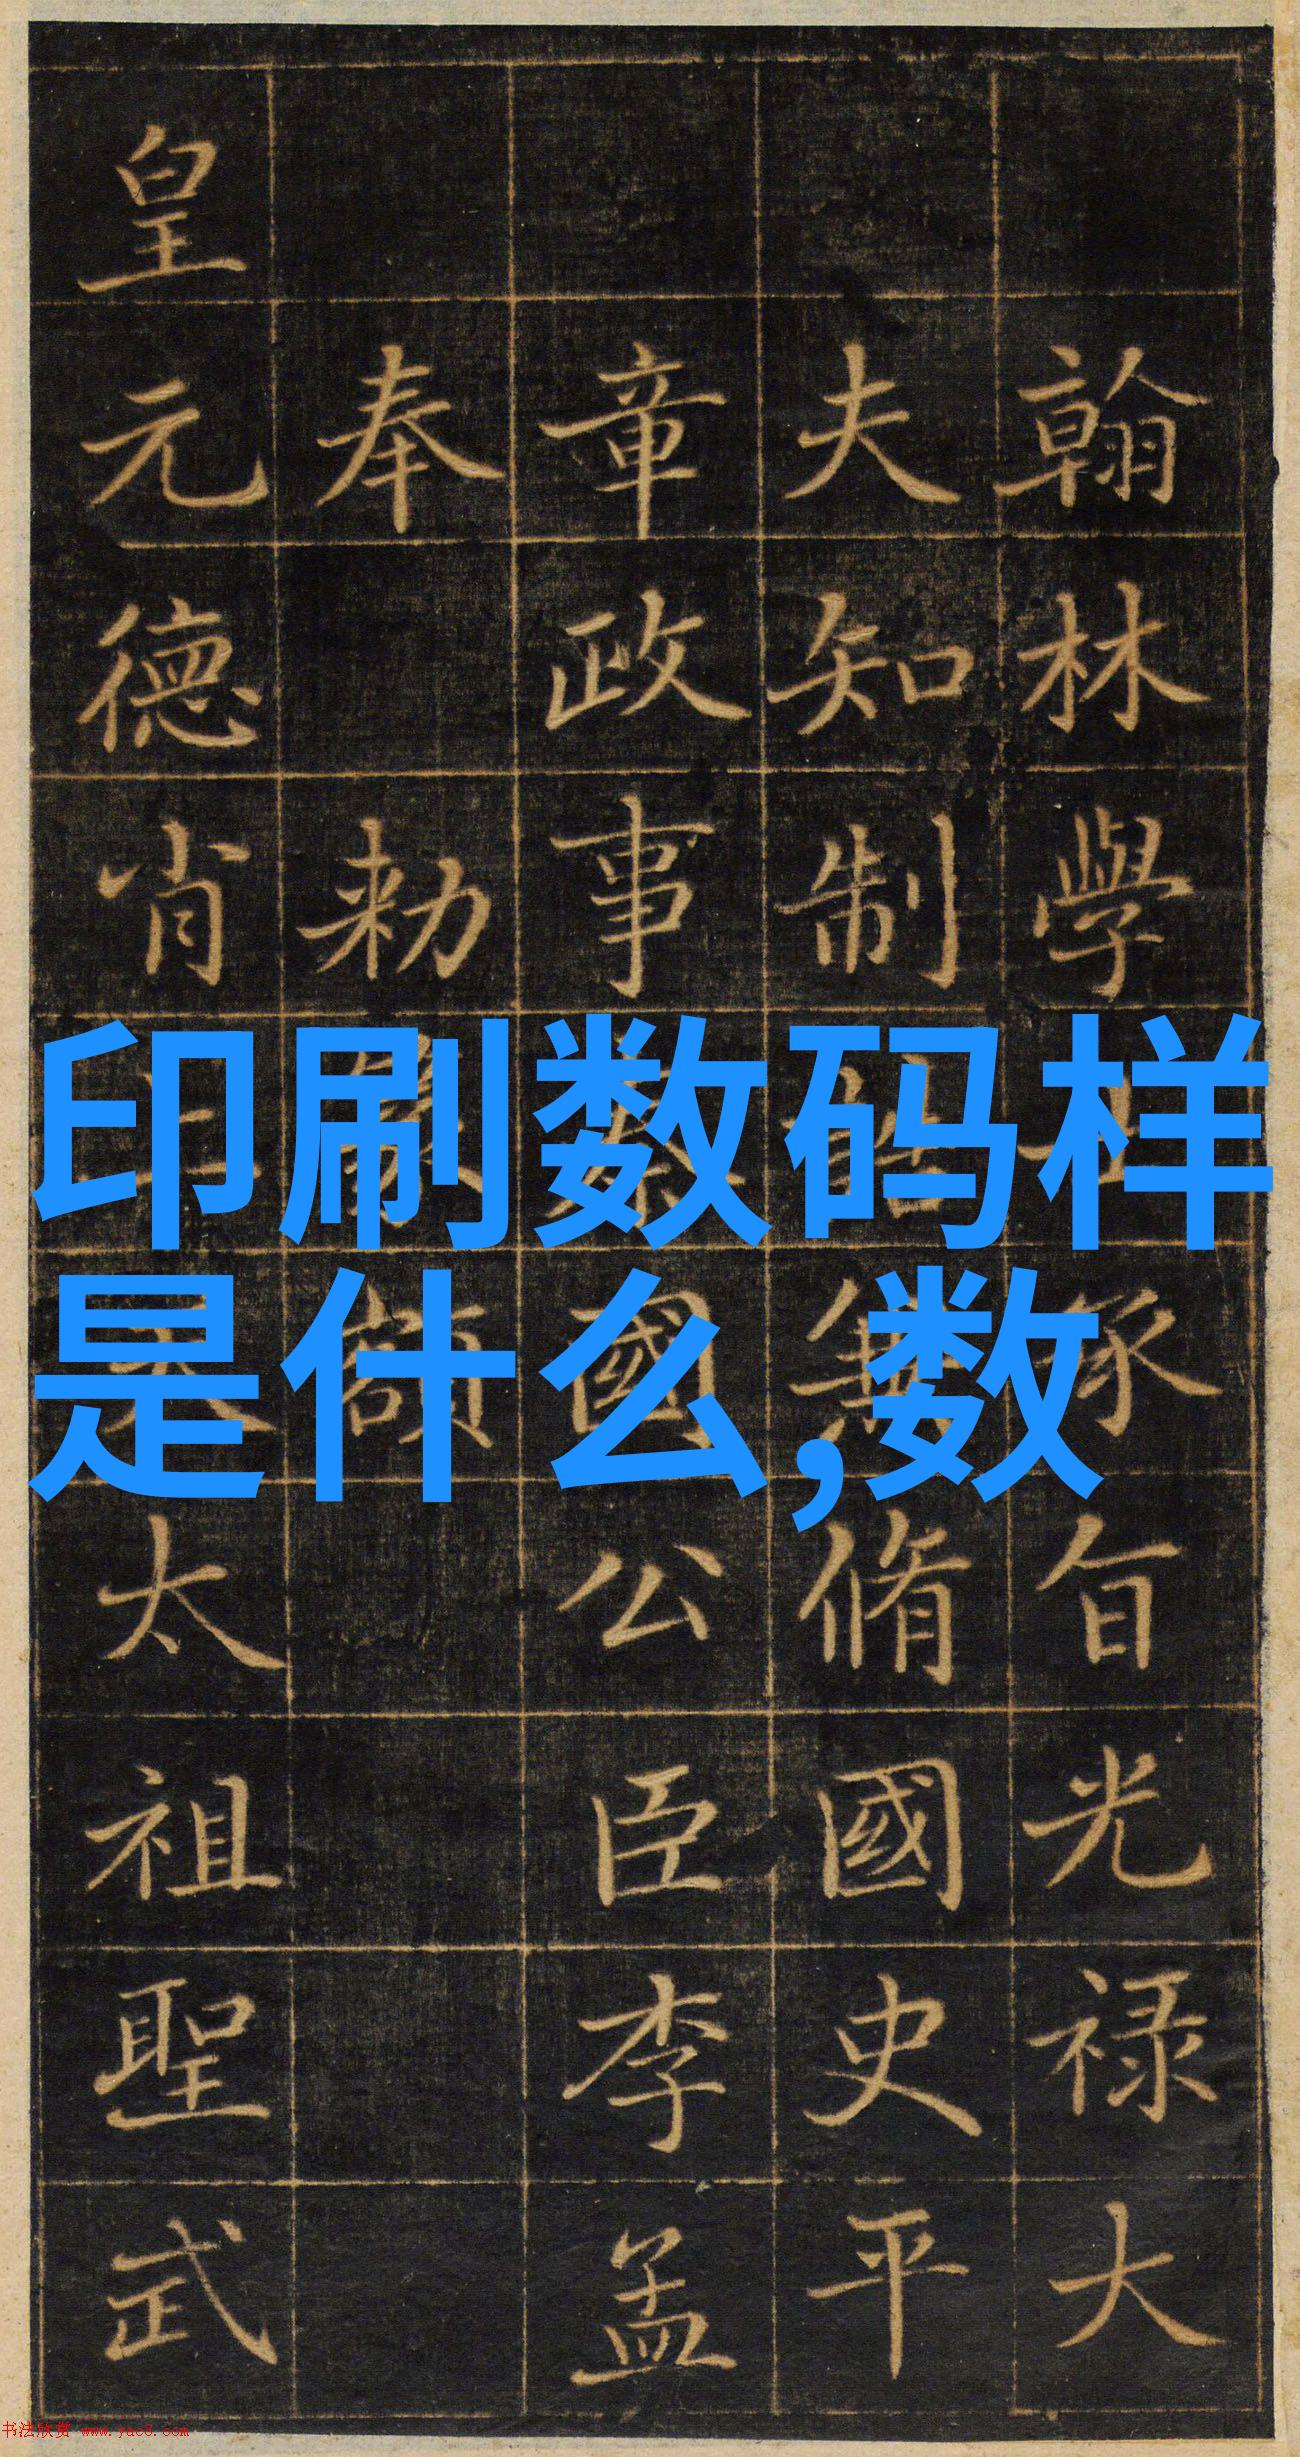 翰林學士承旨光禄大
夫知制誥兼脩國史平
章政事國公臣李孟
奉勅額
皇元德肖天太祖聖武
印刷数码样
是什么,数
书法欣赏 www.yac8.com